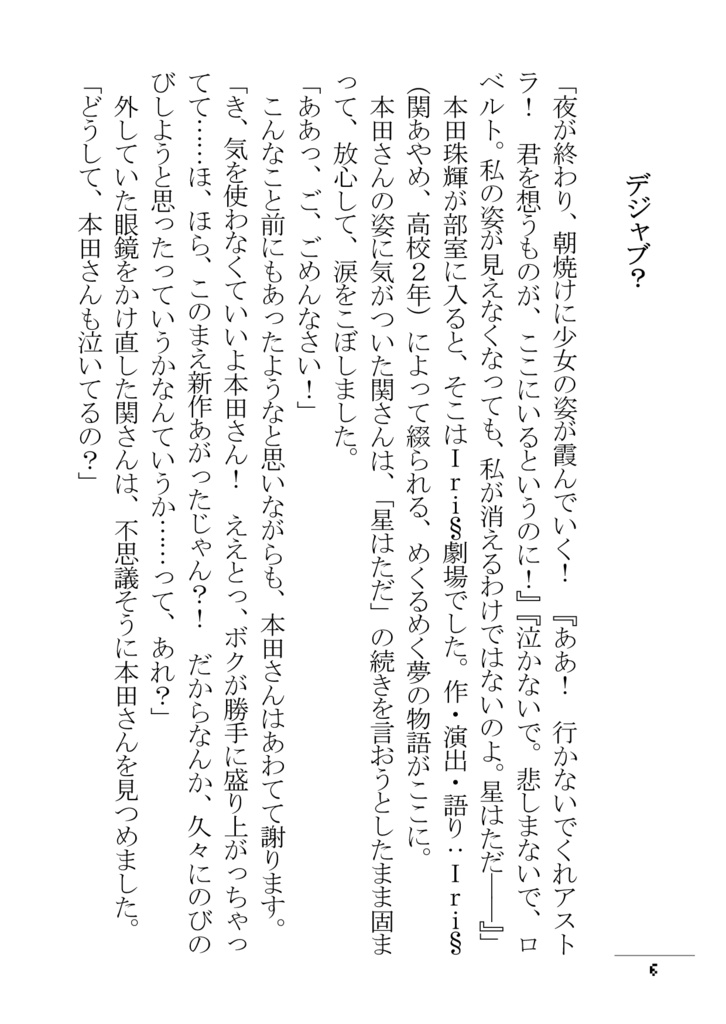 デジャブ？
「夜が終わり、朝焼けに少女の姿が霞んでいく！　『ああ！　行かないでくれアスト
ラ！　君を想うものが、ここにいるというのに！』『泣かないで。悲しまないで、ロ
ベルト。私の姿が見えなくなっても、私が消えるわけではないのよ。星はただ――』」
　本田珠輝が部室に入ると、そこはＩｒｉ§劇場でした。作・演出・語り：Ｉｒｉ§
（関あやめ、高校２年）によって綴られる、めくるめく夢の物語がここに。
　本田さんの姿に気がついた関さんは、「星はただ」の続きを言おうとしたまま固ま
って、放心して、涙をこぼしました。
「ああっ、ご、ごめんなさい！」
　こんなこと前にもあったようなと思いながらも、本田さんはあわてて謝ります。
「き、気を使わなくていいよ本田さん！　ええとっ、ボクが勝手に盛り上がっちゃっ
てて……ほ、ほら、このまえ新作あがったじゃん？！　だからなんか、久々にのびの
びしようと思ったっていうかなんていうか……って、あれ？」
　外していた眼鏡をかけ直した関さんは、不思議そうに本田さんを見つめました。
「どうして、本田さんも泣いてるの？」
6